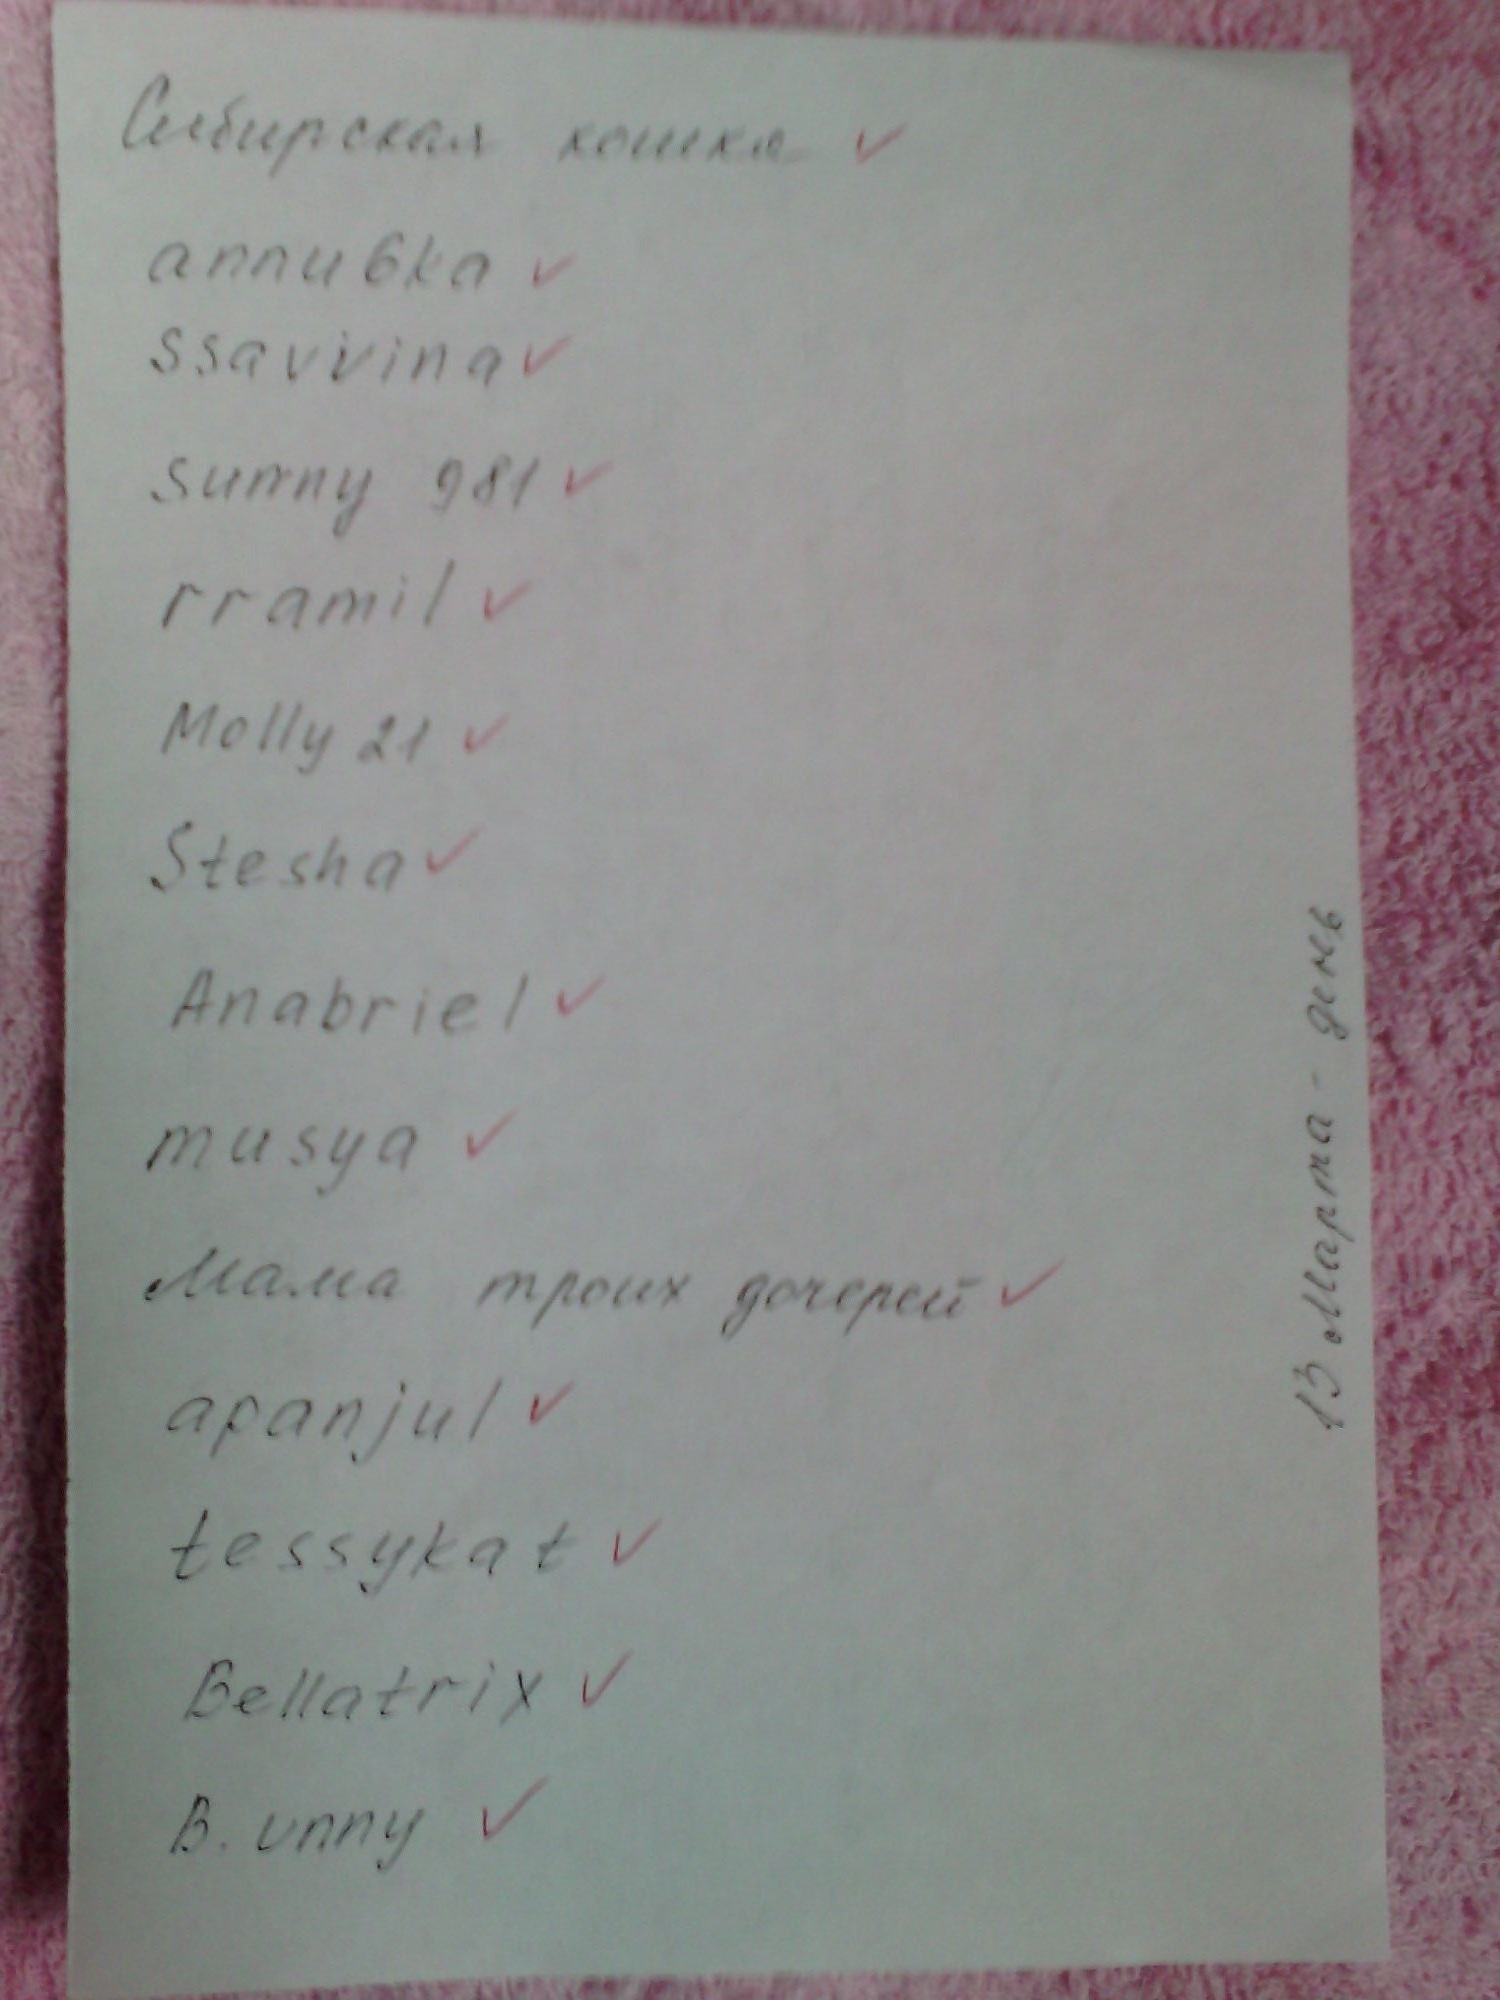 Сибирская кошка ✓
annu6ka ✓
ssavvina ✓
sunny 981 ✓
rramil ✓
Molly 21 ✓
Stesha ✓
Anabriel ✓
musya ✓
Мама троих дочерей ✓
apanjul ✓
tessykat ✓
Bellatrix ✓
B. unny ✓
13 Марта - день